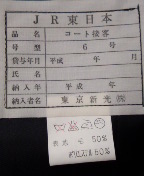 JR東日本
品名 コート接客
号型 6号
貸与年月 平成 年 月
氏名
納入年 平成 年
納入者名 東京新光㈱
表地 毛 50%
50%